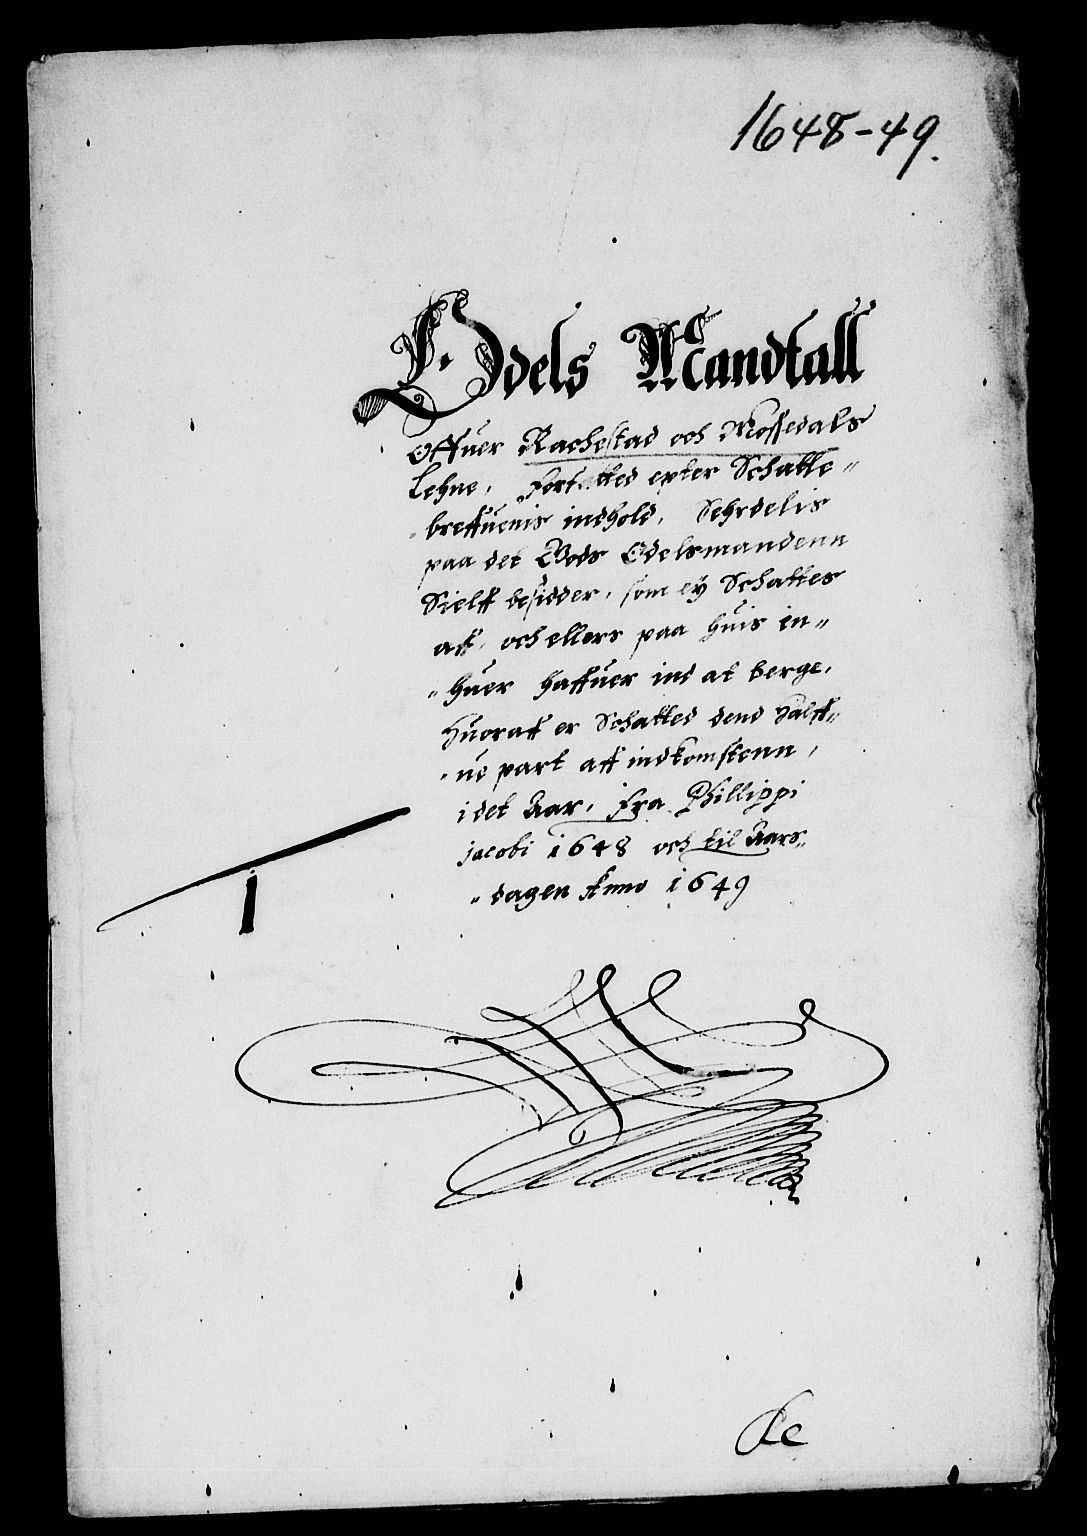 1648-49.
Odels Mandtall
Offuer Rachestad och Mossedals
Lehne, Forfatted epter Schatte„
breffuenis indhold, Sehrdelis
paa det Gods Odelsmandenn
Sielff besidder, som ey Schattes
aff, och ellers paa huis in„
„huer haffuer ind at berge,
Huoraff er Schatted dend Halff„
ue part aff indkomstenn,
i det Aar, Fra Phillippi
Jacobi 1648 och til Aars„
„dagen Anno 1649
1